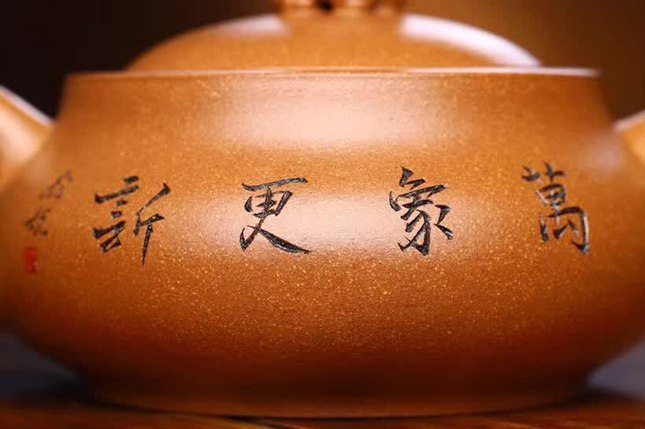 萬象更新